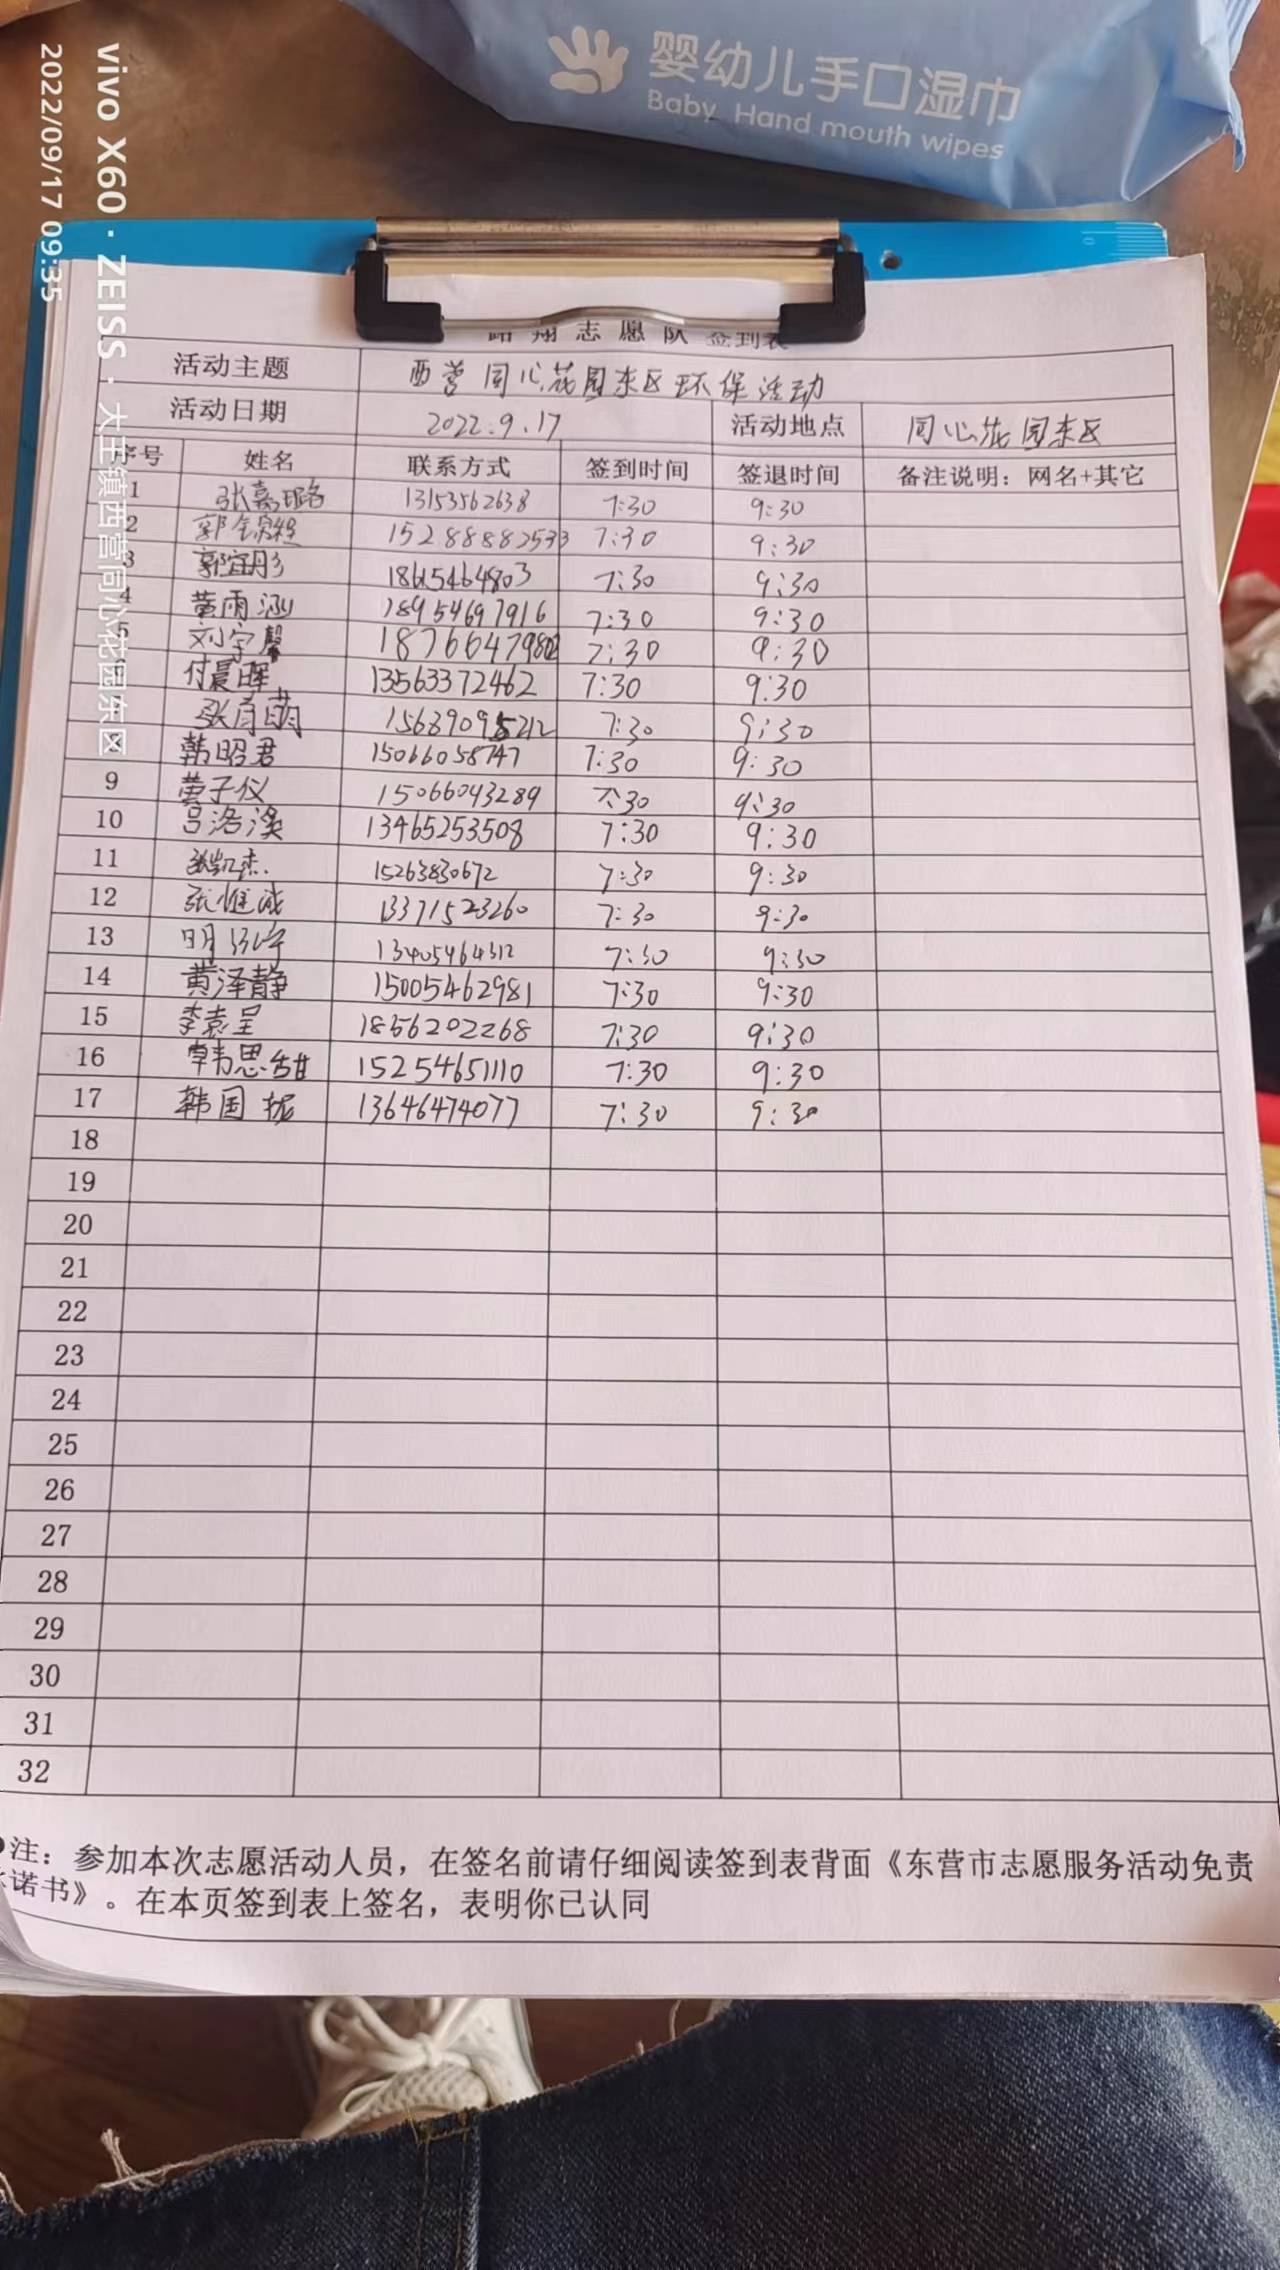 婴幼儿手口湿巾
Baby Hand mouth wipes
vivo X60 · ZEISS · 大王镇西营同心花园东区
2022/09/17 09:35
翔志愿队 签到表
活动主题 西营同心花园东区环保活动
活动日期 2022.9.17 活动地点 同心花园东区
序号 姓名 联系方式 签到时间 签退时间 备注说明：网名+其它
1 张嘉璐 13153562638 7:30 9:30
2 15288882533 7:30 9:30
3 18615464803 7:30 9:30
4 黄雨涵 18954697916 7:30 9:30
5 刘宇馨 18766479802 7:30 9:30
付晨晖 13563372462 7:30 9:30
张育萌 7:30 9:30
韩昭君 15066058747 7:30 9:30
9 子仪 15066043289 7:30 9:30
10 吕洛溪 13465253508 7:30 9:30
11 张凯杰 15263830672 7:30 9:30
12 张惟诚 13371523260 7:30 9:30
13 13405464312 7:30 9:30
14 黄泽静 15005462981 7:30 9:30
15 李袁呈 1856202268 7:30 9:30
16 韩思甜 15254651110 7:30 9:30
17 韩国振 13646474077 7:30 9:30
18
19
20
21
22
23
24
25
26
27
28
29
30
31
32
注：参加本次志愿活动人员，在签名前请仔细阅读签到表背面《东营市志愿服务活动免责
诺书》。在本页签到表上签名，表明你已认同